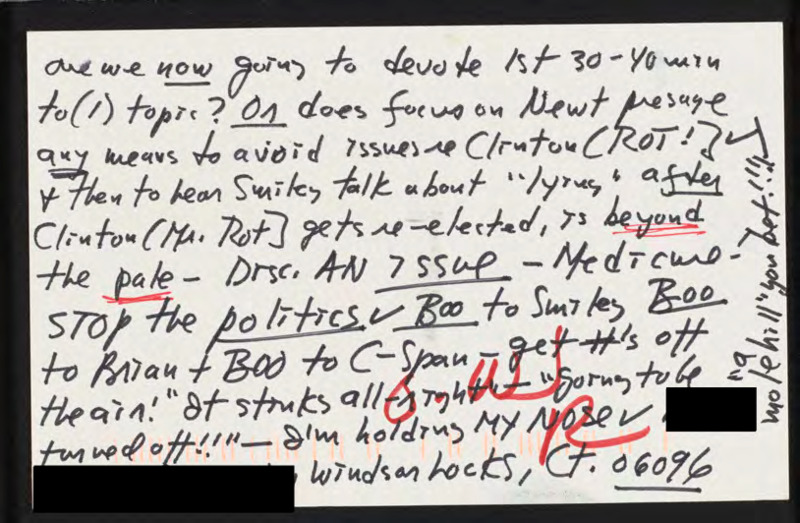 are we now going to devote 1st 30-40 min
to (1) topic? Or does focus on Newt presage
any means to avoid issues re Clinton (ROT!]
& then to hear Smiley talk about "lying" after
Clinton (Mr. Rot] gets re-elected, is beyond
the pale - Disc. AN issue - Medicare -
STOP the politics ✓ Boo to Smiley Boo
to Brian + Boo to C-Span - get #'s off
the air! "It stinks all-right" - "going to be
turned off!!" - I'm holding MY NOSE ✓
Windsor Locks, CT. 06096
"a molehill" you bet!!"